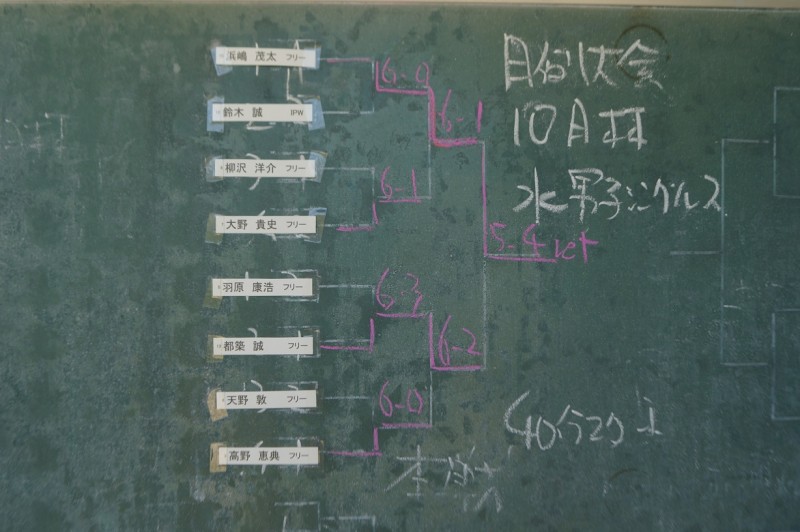 浜嶋 茂太 フリー
鈴木 誠 IPW
柳沢 洋介 フリー
大野 貴史 フリー
羽原 康浩 フリー
都築 誠 フリー
天野 敦 フリー
高野 恵典 フリー
6-0
6-1
6-1
5-4 ret
6-2
6-0
大会
10月
水 男子シングルス
40分